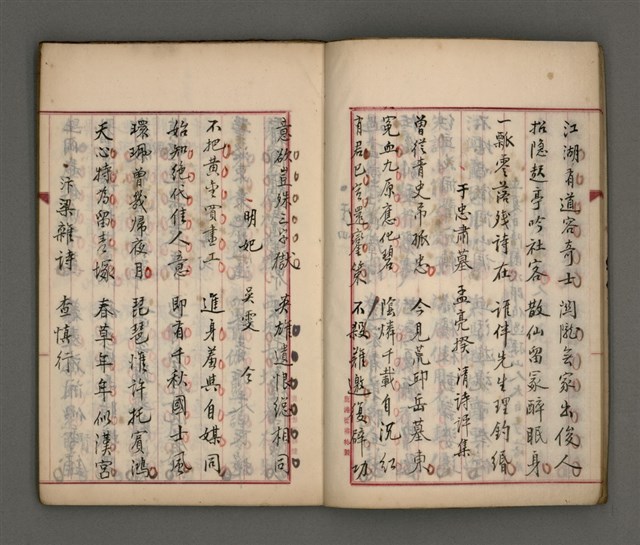 江湖有道容奇士　關隴無家出俊人
招隱趁亭吟社客　散仙留冢醉眠身
一瓢零落殘詩在　誰伴先生理釣緡
于忠肅墓　孟亮揆　清詩評集
曾從青史弔孤忠　今見荒邱岳墓東
冤血九原應化碧　陰燐千載自沉紅
有君已定還鑾策　不殺難邀復辟功
意欲豈殊三字獄　英雄遺恨總相同
明妃　吳雯　仝
不把黃金買畫工　進身羞與自媒同
始知絕代佳人意　即有千秋國士風
環珮曾幾歸夜月　琵琶惟許托賓鴻
天心特為留青塚　春草年年似漢宮
汴梁雜詩　查慎行